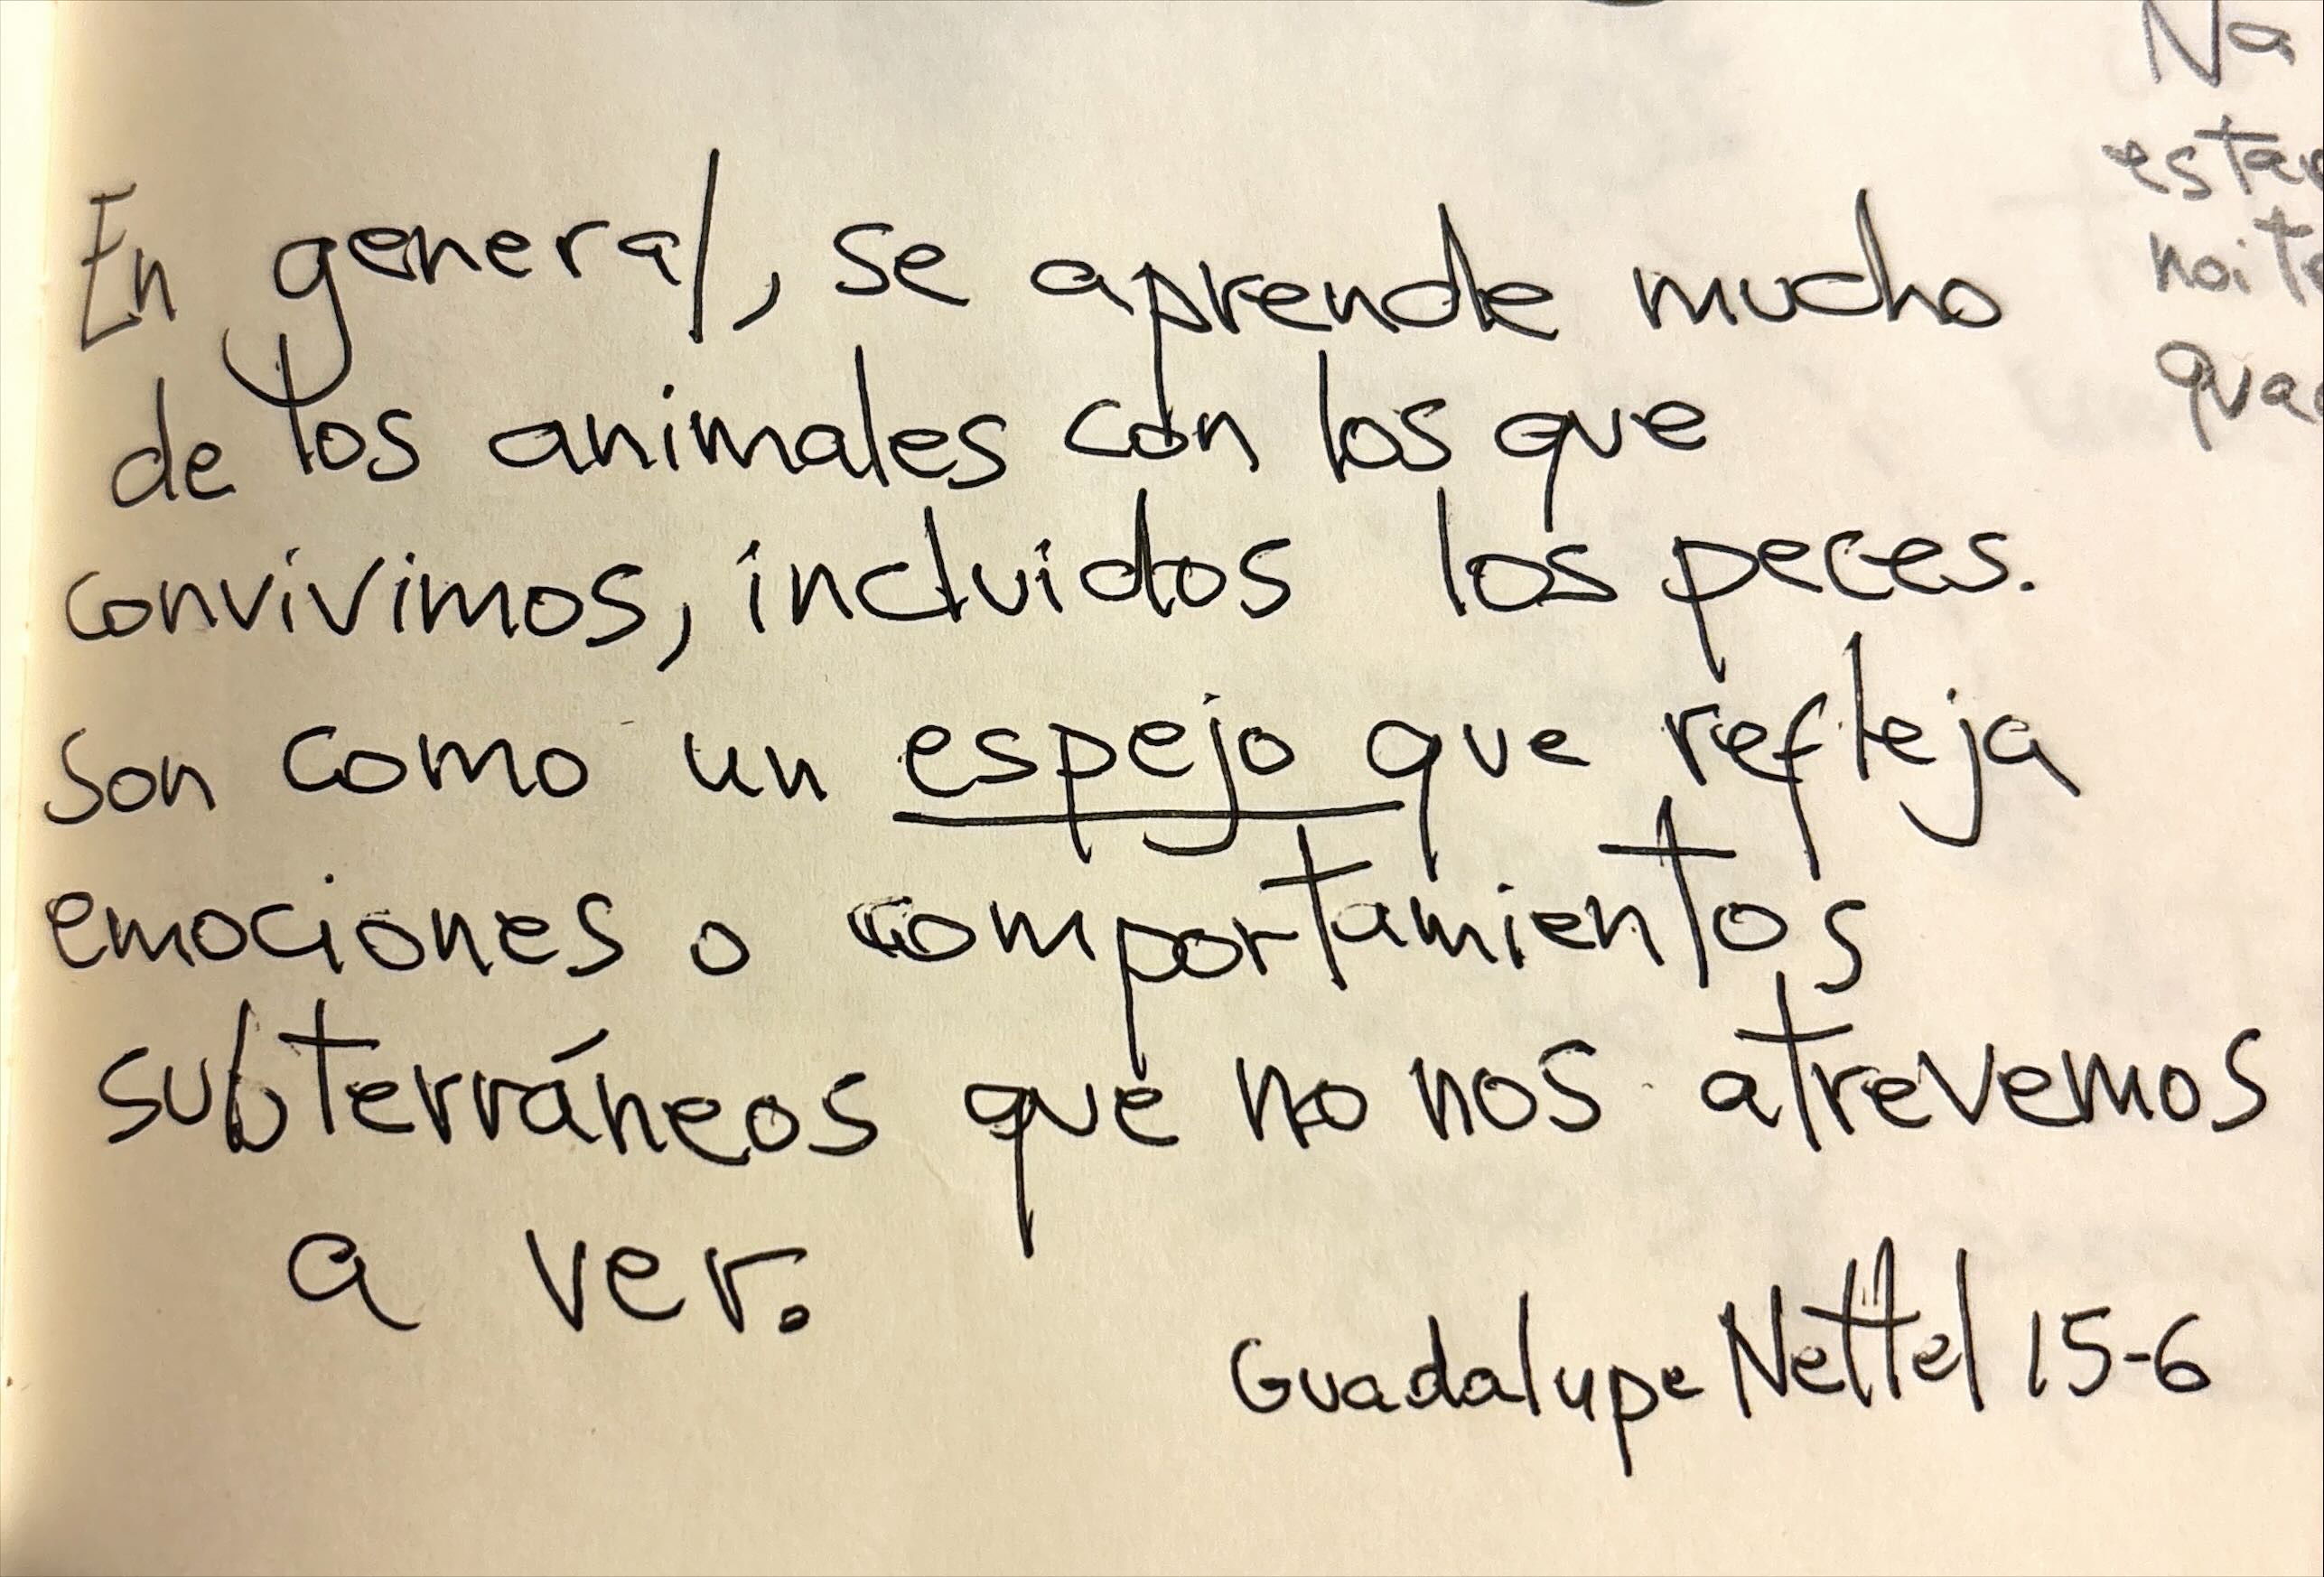 En general, se aprende mucho
de los animales con los que
convivimos, incluidos los peces.
Son como un espejo que refleja
emociones o comportamientos
subterráneos que no nos atrevemos
a ver.
Guadalupe Nettel 15-6
Na